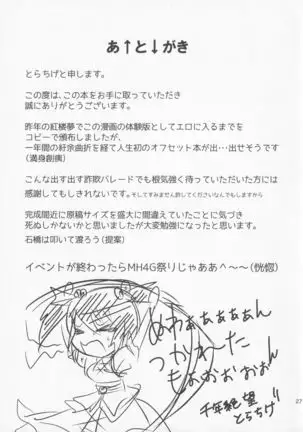 あ↑と↓がき
とらちげと申します。
この度は、この本をお手に取っていただき
誠にありがとうございます。
昨年の紅楼夢でこの漫画の体験版としてエロに入るまでを
コピーで頒布しましたが、
一年間の紆余曲折を経て人生初のオフセット本が出…出せそうです
(満身創痍)
こんな出す出す詐欺バレードでも根気強く待っていただいた方には
感謝してもしきれないです。そしてすみません許してくださいなんでもしますから
完成間近に原稿サイズを盛大に間違えていたことに気づき
死ぬしかないかと思いましたが大変勉強になったと思います。
石橋は叩いて渡ろう(提案)
イベントが終わったらMH4G祭りじゃああ^～～(恍惚)
めわぁぁぁぁぁん
つかれた
もおおおおおん
千年絶望
とらちげ
27